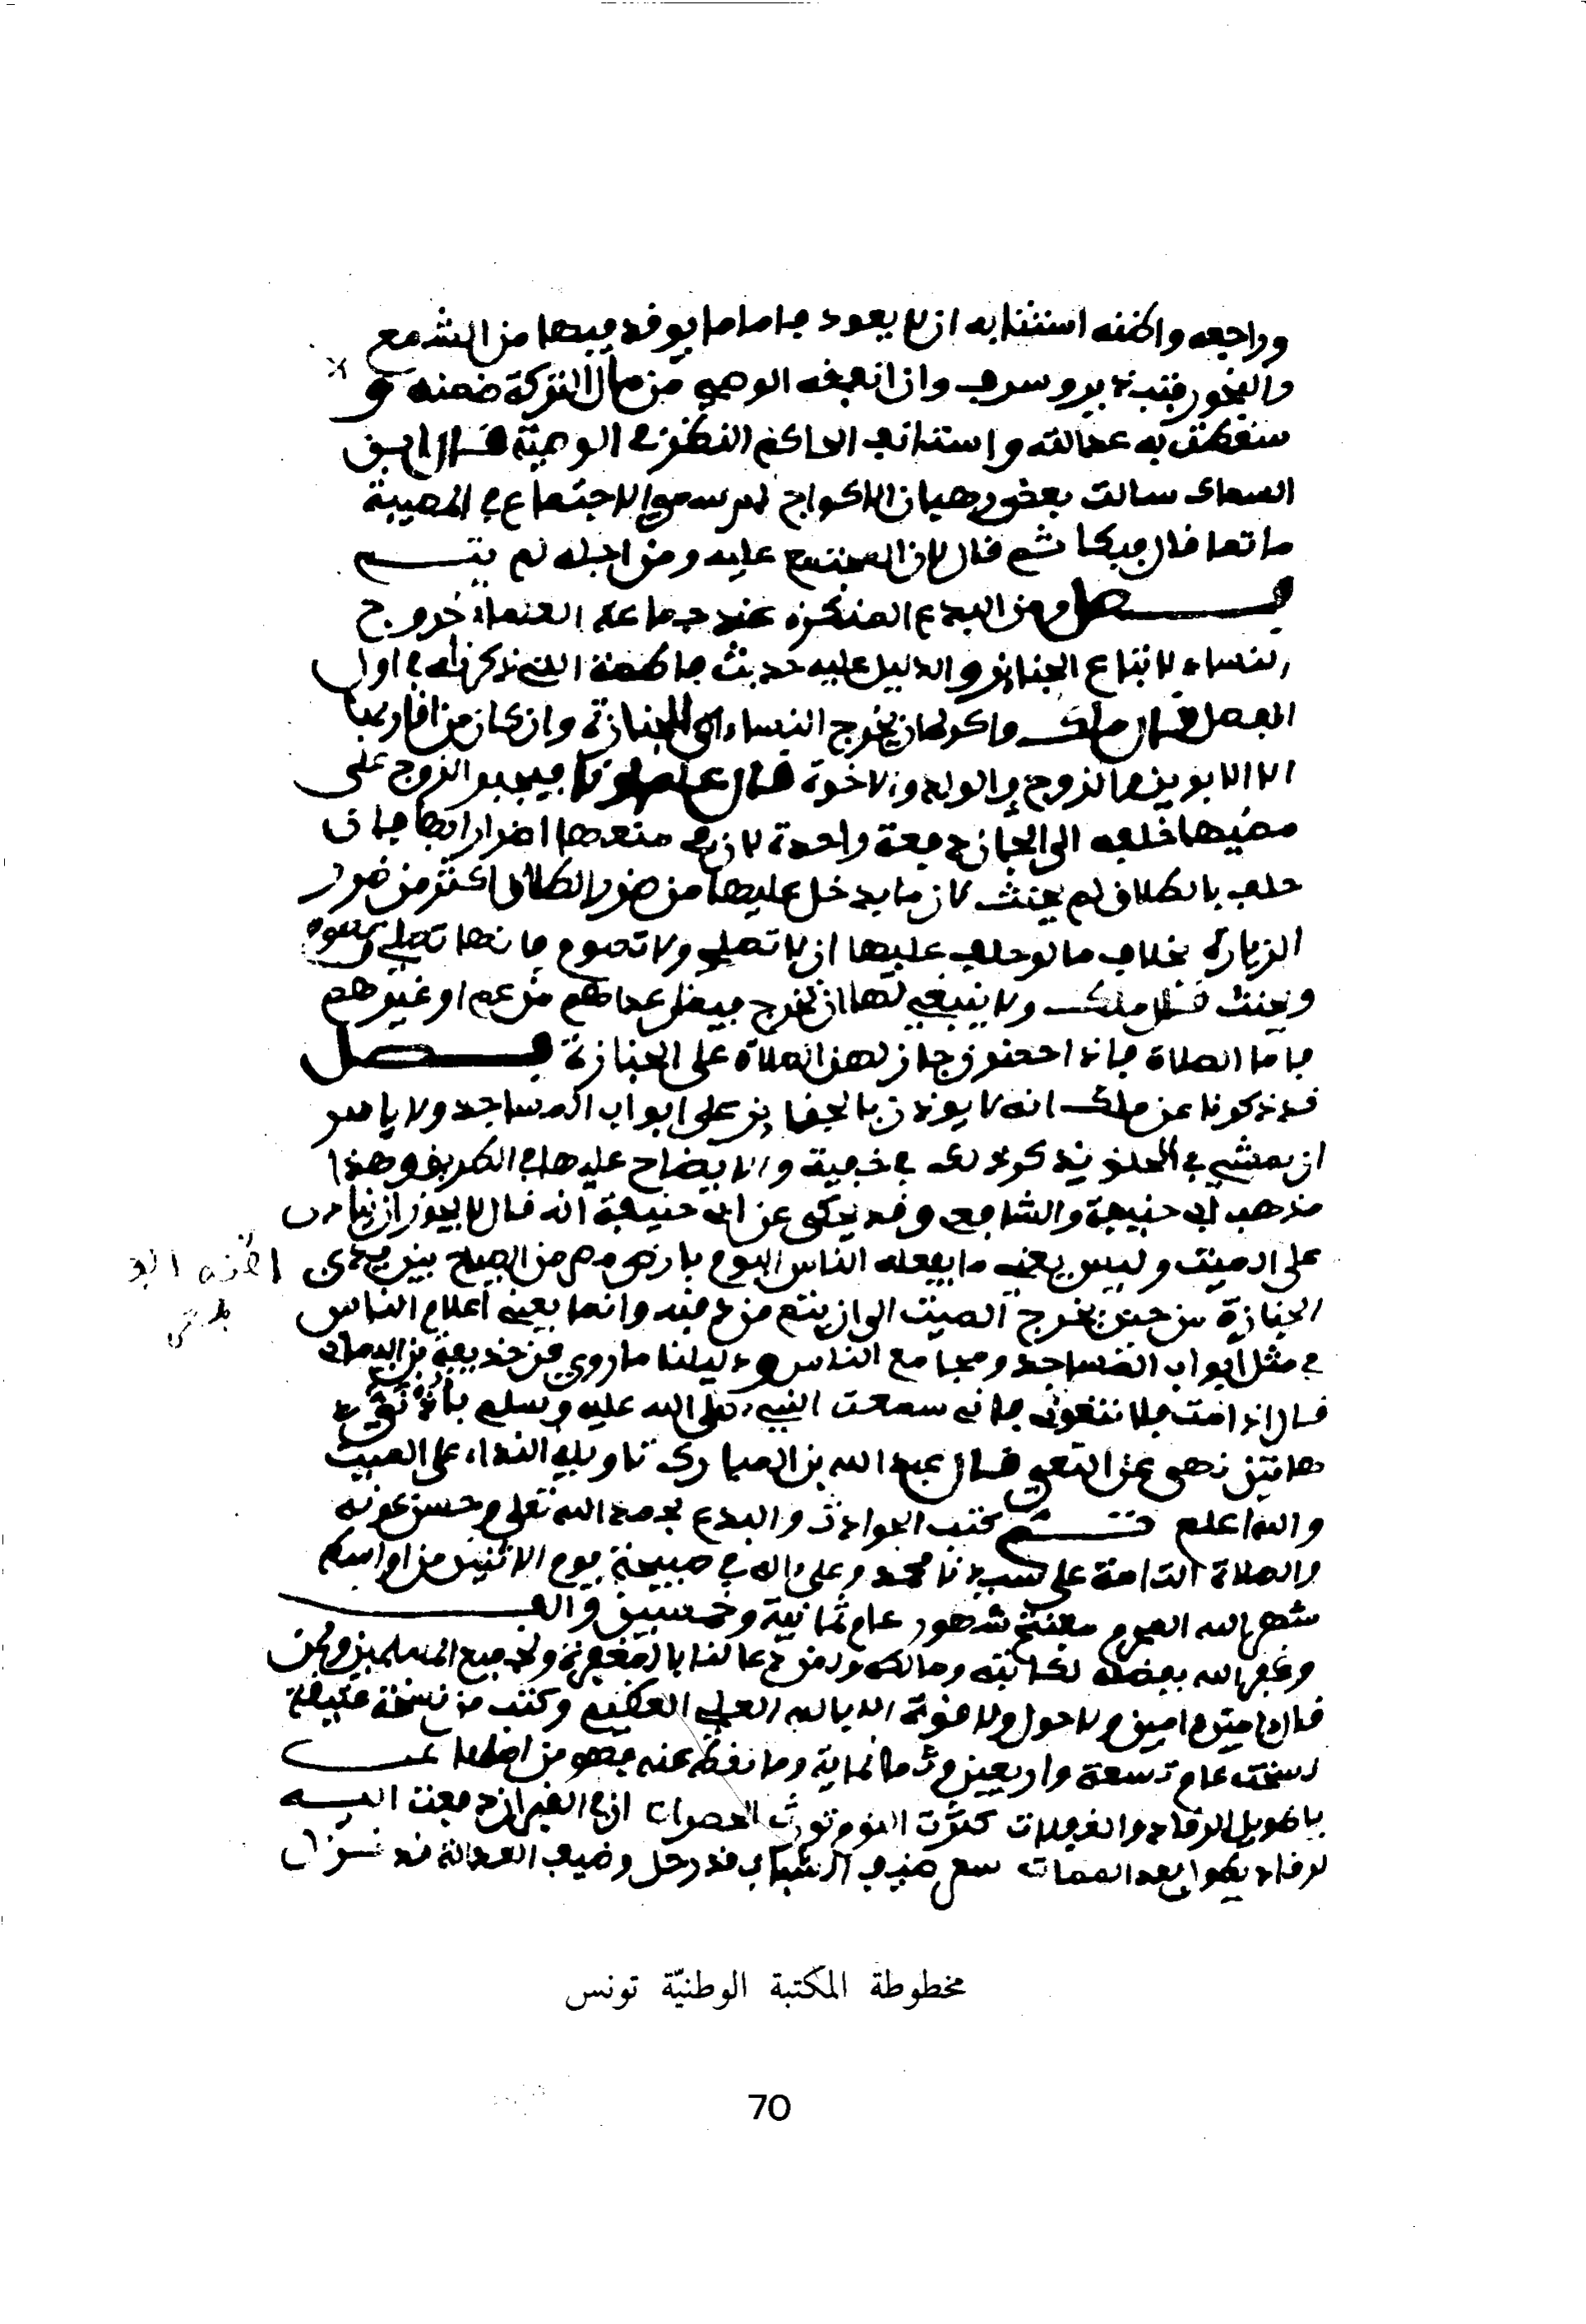 وراجعه واظنه استتابه ان لا يعود فاما ما يوقد فيها من الشمع
والبخور فتبذير وسرف وان انفقه الوصي من مال التركة ضمنه و
سقطت به عدالته واستانف الحاكم النظر في الوصية قال ابن
السماك سالت بعض رهبان الاكواخ لم سمي الاجتماع في المصيبة
ماتما فال فبكا ثم فال لان المجتمع عليه ومن اجله لم يتم
فصل ومن البدع المنكرة عند جماعة العلماء خروج
النساء لاتباع الجنائز والدليل عليه حديث فاطمة التي ذكرناه في اول
الفصل قال ملك واكره ان يخرج النساء الى الجنازة وان كان من اقاربها
الا الابوين والزوج والولد والاخوة قال علماونا فيجبر الزوج على
مضيها خلفه الى الجنازة دفعة واحدة لان في منعها اضرارا بها فان
حلف بالطلاق لم يحنث لان ما يدخل عليها من ضرر الطلاق اكثر من ضرر
الزيارة بخلاف ما لو حلف عليها ان لا تصلي ولا تصوم فانها تصلي وتصوم
ويحنث قال ملك ولا ينبغي لها ان تخرج فيمن عداهم من عم او غيرهم
فاما الصلاة فاذا احضرن جاز لهن الصلاة على الجنازة فصل
قد ذكرنا عن ملك انه لا يوذن بالجنائز على ابواب المساجد ولا باس
ان يمشي في الحلق يذكر ذلك في خفية ولا يصاح عليها في الطريق وهذا
مذهب ابي حنيفة والشافعي وقد يحكى عن ابي حنيفة انه قال لا يجوز ان ينادى
على الميت وليس يعني ما يفعله الناس اليوم بارض مصر من الصياح بين يدي
الجنازة من حين يخرج الميت الى ان يتم من دفنه وانما يعني اعلام الناس
في مثل ابواب المساجد ومجامع الناس ودليلنا ما روي عن حذيفة بن اليمان
قال اذا مت فلا تنعوني فاني سمعت النبي صلى الله عليه وسلم باذني
هاتين نهى عن النعي قال عبد الله بن المبارك تاويله النداء على الميت
والله اعلم تم كتب الحوادث والبدع بحمد الله تعلى وحسن عونه
والصلاة التامة على سيدنا محمد وعلى اله في صبيحة يوم الاثنين من اواسط
شهر الله المحرم مفتتح شهور عام ثمانية وخمسين والف
وغفر الله بفضله لكاتبه ومالكه ولمن دعا لنا بالمغفرة ولجميع المسلمين ولمن
قال امين امين ولا حول ولا قوة الا بالله العلي العظيم وكتب من نسخة عتيقة
نسخت عام تسعة واربعين وثمانماية وما نقط عنه فهو من اصلها
يا طويل الرقاد والغفلات كثرت النوم تورث الحسرات ان في القبر ان دفعت اليه
لرقاد يطول بعد الممات ضيف الشباب قد رحل وضيف قد نزل
مخطوطة المكتبة الوطنيّة تونس
70